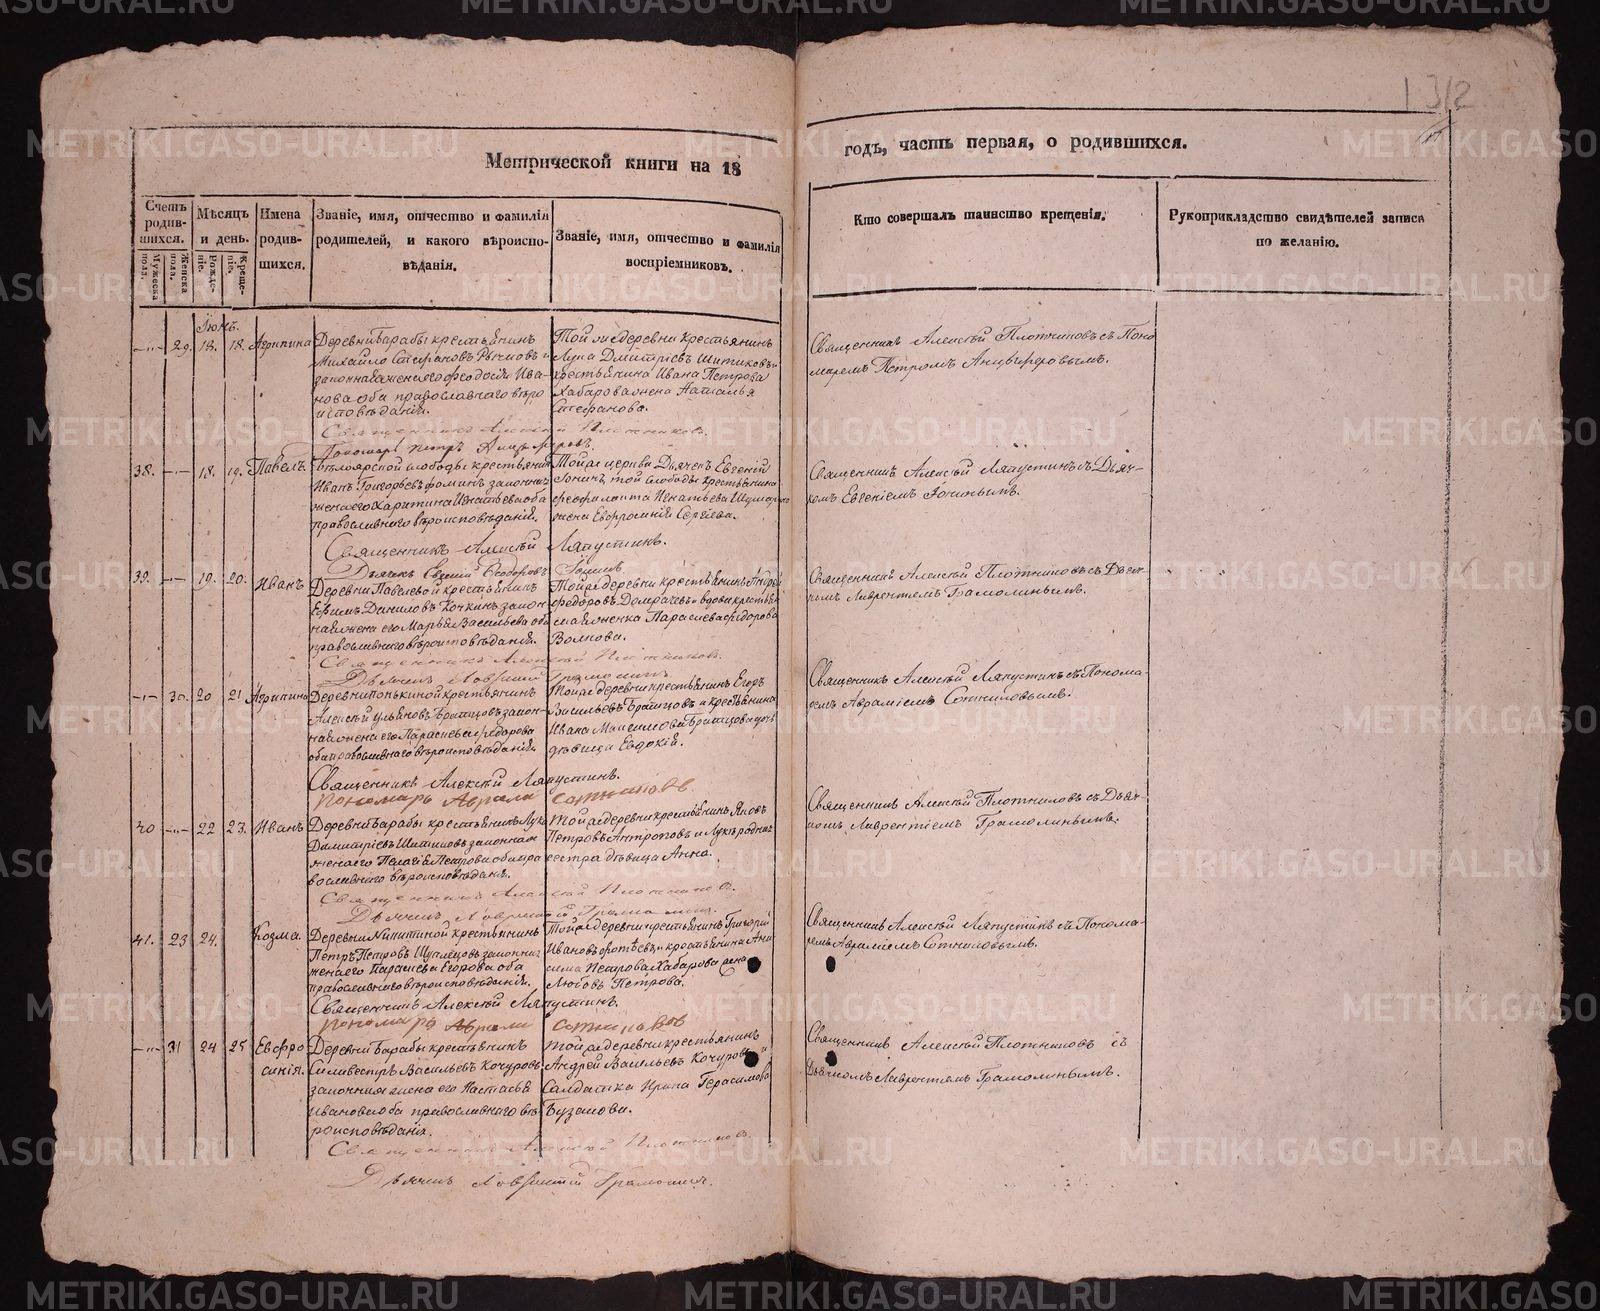 Метрической книги на 18
годъ, часть первая, о родившихся.
Счетъ родив-шихся.
Мужеска пола.
Женска пола.
Мѣсяцъ и день.
Рожде-ніе.
Креще-ніе.
Имена родив-шихся.
Званіе, имя, отчество и фамилія
родителей, и какого вѣроиспо-
вѣданія.
Званіе, имя, отчество и фамилія
воспріемниковъ.
Кто совершалъ таинство крещенія.
Рукоприкладство свидѣтелей записи
по желанію.
Іюнь.
29. 18. 18. Агрипина
Деревни Барабы крестьянинъ
Михайло Стефановъ
законная жена его Феодосія Ива-
нова оба православнаго вѣро
исповѣданія.
Той же деревни крестьянинъ
Лука Дмитріевъ Шитиковъ и
крестьянина Ивана Петрова
Хабарова жена Наталья
Стефанова.
Священникъ Алексѣй Плотниковъ съ Поно
маремъ Петромъ
Священникъ Алексѣй Плотниковъ.
Пономарь Петръ
38. 18. 19. Павелъ.
Бѣлоярской слободы крестьянинъ
Иванъ Григорьевъ Фоминъ законная
жена его Харитина Игнатьева оба
православнаго вѣроисповѣданія.
Той же церкви Дьячекъ Евгеній
той слободы крестьянина
Игнатьева
жена Евфросинія Сергіева.
Священникъ Алексѣй Ляпустинъ съ Дьяч-
комъ Евгеніемъ
Священникъ Алексѣй Ляпустинъ.
Дьячекъ Евгеній Феодоровъ
39. 19. 20. Иванъ
Деревни Павлевой крестьянинъ
Ефимъ Даниловъ Кочкинъ закон
ная жена его Марья Васильева оба
православнаго вѣроисповѣданія.
Той же деревни крестьянинъ Андрей
Федоровъ и вдова крестьян
ская женка Параскева Федорова
Волкова.
Священникъ Алексѣй Плотниковъ съ Дьяч-
комъ Лаврентіемъ Грамолинымъ.
Священникъ Алексѣй Плотниковъ.
Дьячекъ Лаврентій Грамолинъ.
30. 20 21 Агрипина
Деревни крестьянинъ
Алексѣй Ульяновъ Братцовъ закон-
ная жена его Параскева Федорова
оба православнаго вѣроисповѣданія.
Той же деревни крестьянинъ Егоръ
Васильевъ Братцовъ и крестьянина
Ивана Максимова Братцова дочь
дѣвица Евдокія.
Священникъ Алексѣй Ляпустинъ съ Понома-
ремъ Авраміемъ Сотниковымъ.
Священникъ Алексѣй Ляпустинъ.
Пономарь Аврами Сотниковъ
40 22 23. Иванъ
Деревни Барабы крестьянинъ Лука
Димитріевъ Шитиковъ законная
жена его Пелагія Петрова оба пра
вославнаго вѣроисповѣданія.
Той же деревни крестьянинъ Яковъ
Петровъ Антроповъ и Луки родная
сестра дѣвица Анна.
Священникъ Алексѣй Плотниковъ съ Дьяч-
комъ Лаврентіемъ Грамолинымъ.
Священникъ Алексѣй Плотниковъ.
Дьячекъ Лаврентій Грамолинъ.
41. 23 24. Козма.
Деревни Никитиной крестьянинъ
Петръ Петровъ законная
жена его Параскева Егорова оба
православнаго вѣроисповѣданія.
Той же деревни крестьянинъ Григорій
Ивановъ и крестьянина Они
сима Петрова Хабарова жена
Любовь Петрова.
Священникъ Алексѣй Ляпустинъ съ Понома-
ремъ Авраміемъ Сотниковымъ.
Священникъ Алексѣй Ляпустинъ.
Пономарь Аврами Сотниковъ
31 24 25 Евфро
синія.
Деревни Барабы крестьянинъ
Силивестръ Васильевъ Кочуровъ
законная жена его Настасья
Иванова оба православнаго вѣ
роисповѣданія.
Той же деревни крестьянинъ
Андрей Васильевъ Кочуровъ и
Солдатка Ирина Герасимова
Бузанова.
Священникъ Алексѣй Плотниковъ съ
Дьячкомъ Лаврентіемъ Грамолинымъ.
Священникъ Алексѣй Плотниковъ.
Дьячекъ Лаврентій Грамолинъ.
METRIKI.GASO-URAL.RU